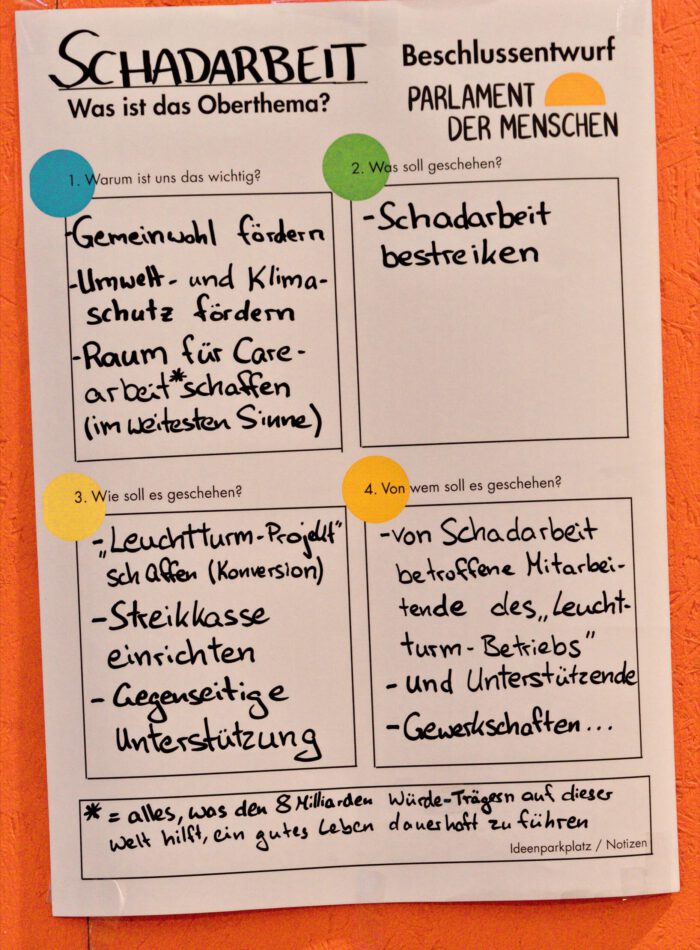 SCHADARBEIT
Was ist das Oberthema?
Beschlussentwurf
PARLAMENT
DER MENSCHEN
1. Warum ist uns das wichtig?
-Gemeinwohl fördern
-Umwelt- und Klima-
schutz fördern
-Raum für Care-
arbeit*schaffen
(im weitesten Sinne)
2. Was soll geschehen?
-Schadarbeit
bestreiken
3. Wie soll es geschehen?
-„Leuchtturm-Projekt"
schaffen (Konversion)
-Streikkasse
einrichten
-Gegenseitige
Unterstützung
4. Von wem soll es geschehen?
-von Schadarbeit
betroffene Mitarbei-
tende des „Leucht-
turm-Betriebs"
- und Unterstützende
-Gewerkschaften...
* = alles, was den 8 Milliarden Würde-Trägern auf dieser
Welt hilft, ein gutes Leben dauerhaft zu führen
Ideenparkplatz / Notizen